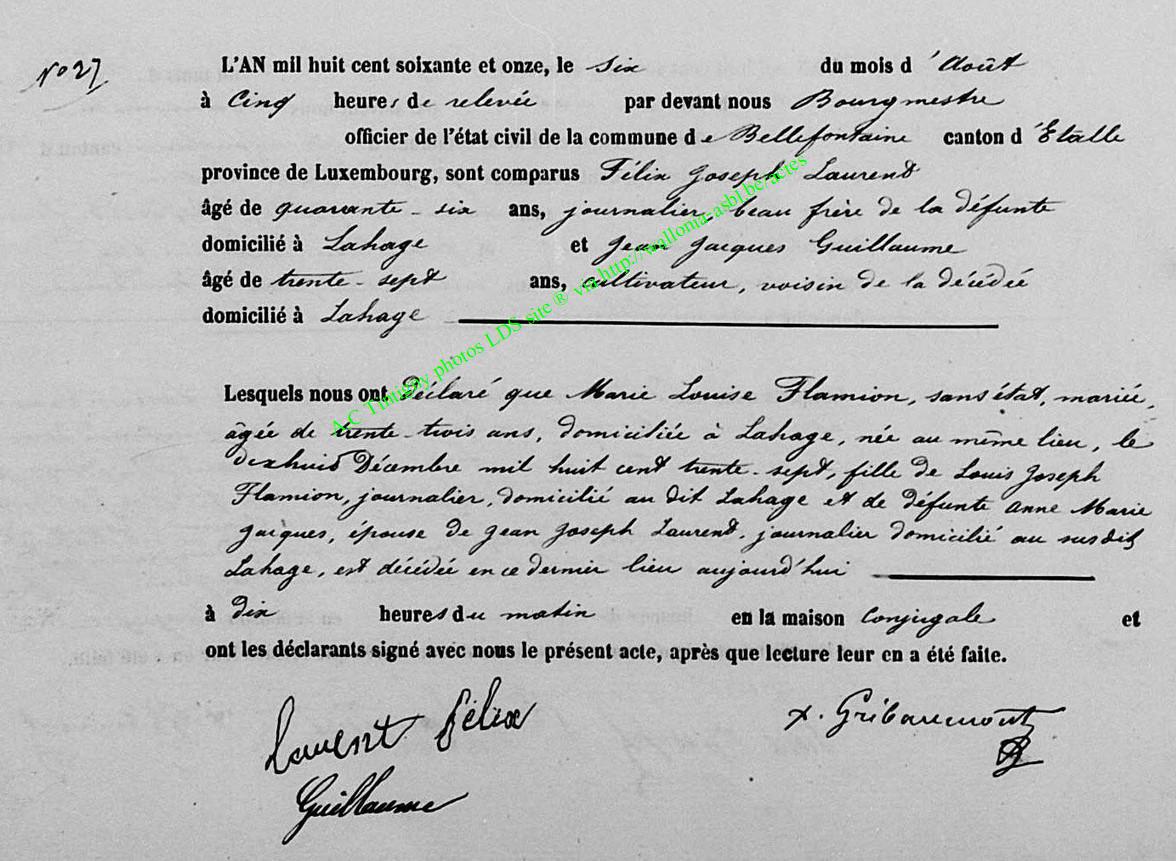 N° 27.
L'AN mil huit cent soixante et onze, le six du mois d'Août
à Cinq heures de relevée par devant nous Bourgmestre
officier de l'état civil de la commune de Bellefontaine canton d'Etalle
province de Luxembourg, sont comparus Félix Joseph Laurent
âgé de quarante-six ans, journalier, beau frère de la défunte
domicilié à Lahage et Jean Jacques Guillaume
âgé de trente-sept ans, cultivateur, voisin de la décédée
domicilié à Lahage
Lesquels nous ont Déclaré que Marie Louise Flamion, sans état, mariée,
âgée de trente-trois ans, domiciliée à Lahage, née au même lieu, le
dixhuit Décembre mil huit cent trente-sept, fille de Louis Joseph
Flamion, journalier, domicilié au dit Lahage et de défunte Anne Marie
Jacques, épouse de Jean Joseph Laurent, journalier domicilié au susdit
Lahage, est décédée en ce dernier lieu aujourd'hui
à dix heures du matin en la maison Conjugale et
ont les déclarants signé avec nous le présent acte, après que lecture leur en a été faite.
Laurent Félix
Guillaume
x. Gribaumont
A.C Tintigny photos LDS site ® via http://wallonia-asbl.be/actes